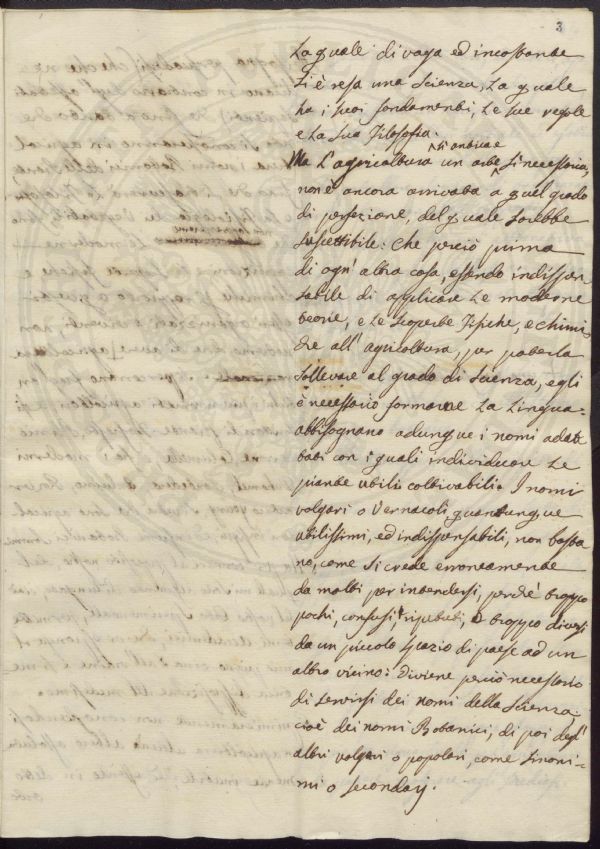 3
La quale di vaga ed incostante
si è resa una scienza, la quale
ha i suoi fondamenti, le sue regole
e la sua Filosofia.
si antica e
Ma l'agricoltura un arte sì necessaria,
non è ancora arrivata a quel grado
di perfezione, del quale sarebbe
suscettibile: Che perciò prima
di ogn' altra cosa, essendo indispen
sabile di applicare le moderne
teorie, e le scoperte Fisiche, e chimi
che all' agricoltura, per poterla
sollevare al grado di Scienza, egli
è necessario formarne la Lingua.
abbisognano adunque i nomi adat
tati con i quali individuare le
piante utili coltivabili. I nomi
volgari o vernacoli, quantunque
utilissimi, ed indispensabili, non basta
no, come si crede erroneamente
da molti per intendersi, perchè troppo
pochi, confusi, ripetuti, e troppo diversi
da un piccolo spazio di paese ad un
altro vicino: diviene perciò necessario
di servirsi dei nomi della Scienza
cioè dei nomi Botanici, di poi degl'
altri volgari o popolari, come sinoni=
mi o secondarj.